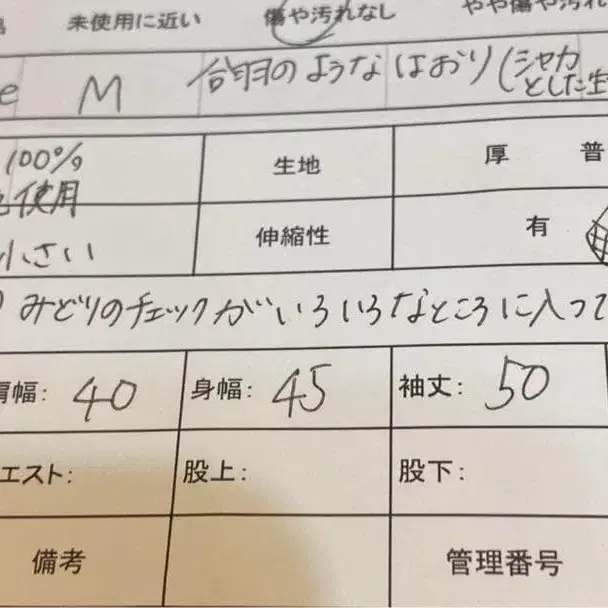 未使用に近い 傷や汚れなし やや傷や汚れ
e M 羽のような はおり (シャカ
とした生
100% 生地 厚 普
使用
小さい 伸縮性 有
みどりのチェックがいろいろなところに入って
肩幅: 40 身幅: 45 袖丈: 50
エスト: 股上: 股下:
備考 管理番号